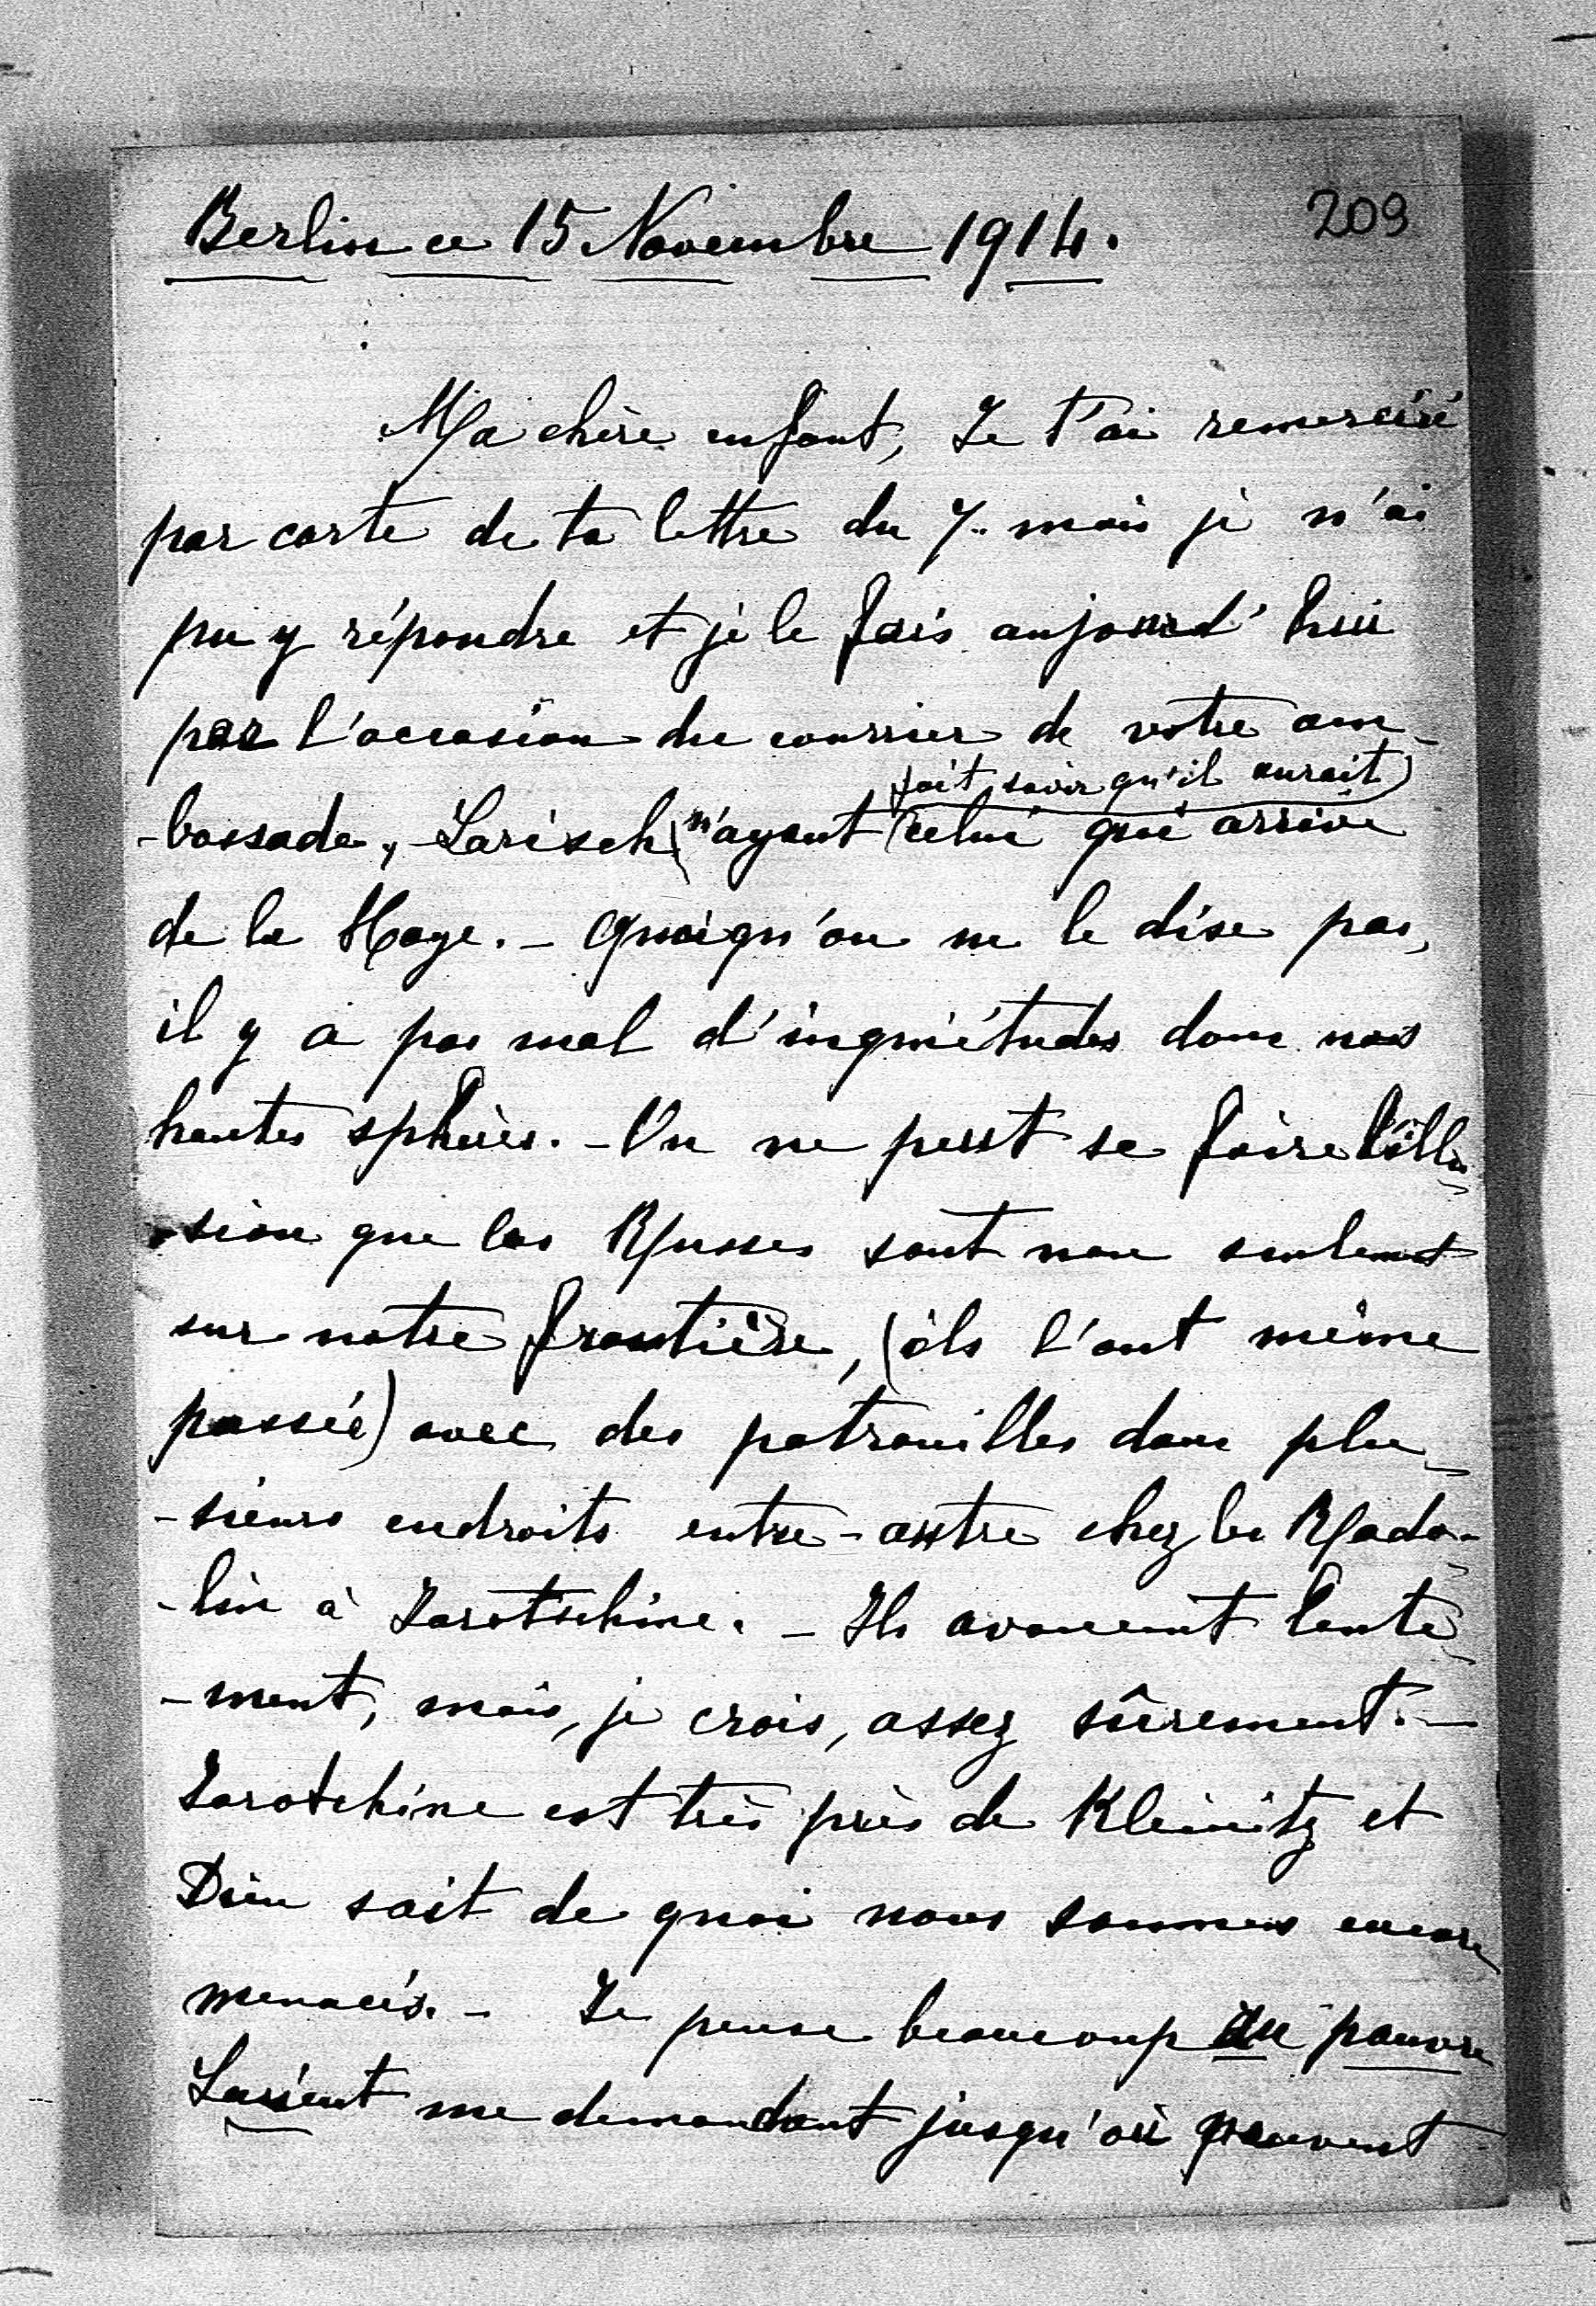 209
Berlin ce 15 Novembre 1914.
Ma chère enfant, Je t'ai remercié
par carte de ta lettre du 7. mais je n'ai
pu y répondre et je le fais aujourd'hui
par l'occasion du courrier de votre am-
fait savoir qu'il aurait)
-bassade, Larisch (m'ayant celui qui arrive
de la Haye. - Quoiqu'on ne le dise pas,
il y a pas mal d'inquiétudes dans nos
hautes sphères. - On ne peut se faire l'illu-
-sion que les Russes sont non seulement
sur notre frontière, (ils l'ont même
passée) avec des patrouilles dans plu-
-sieurs endroits entre-autre chez les Rado-
-lin à Jarotschine. - Ils avancent lente-
-ment, mais, je crois, assez sûrement. -
Jarotchine est très près de Kleinitz et
Dieu sait de quoi nous sommes encore
menacés. - Je pense beaucoup au pauvre
me demandant jusqu'où peuvent